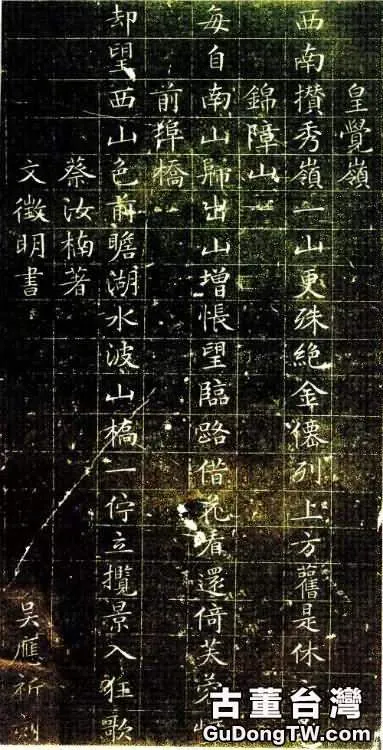 皇覺嶺
西南攢秀嶺一山更殊絶金僊列上方舊是休
錦障山
每自南山歸出山增悵望臨路借花看還倚芙
前埠橋
却望西山色前瞻湖水波山橋一佇立攬景入狂歌
蔡汝楠著
文徵明書
吳應祈刻
古董台灣
GuDongTW.com